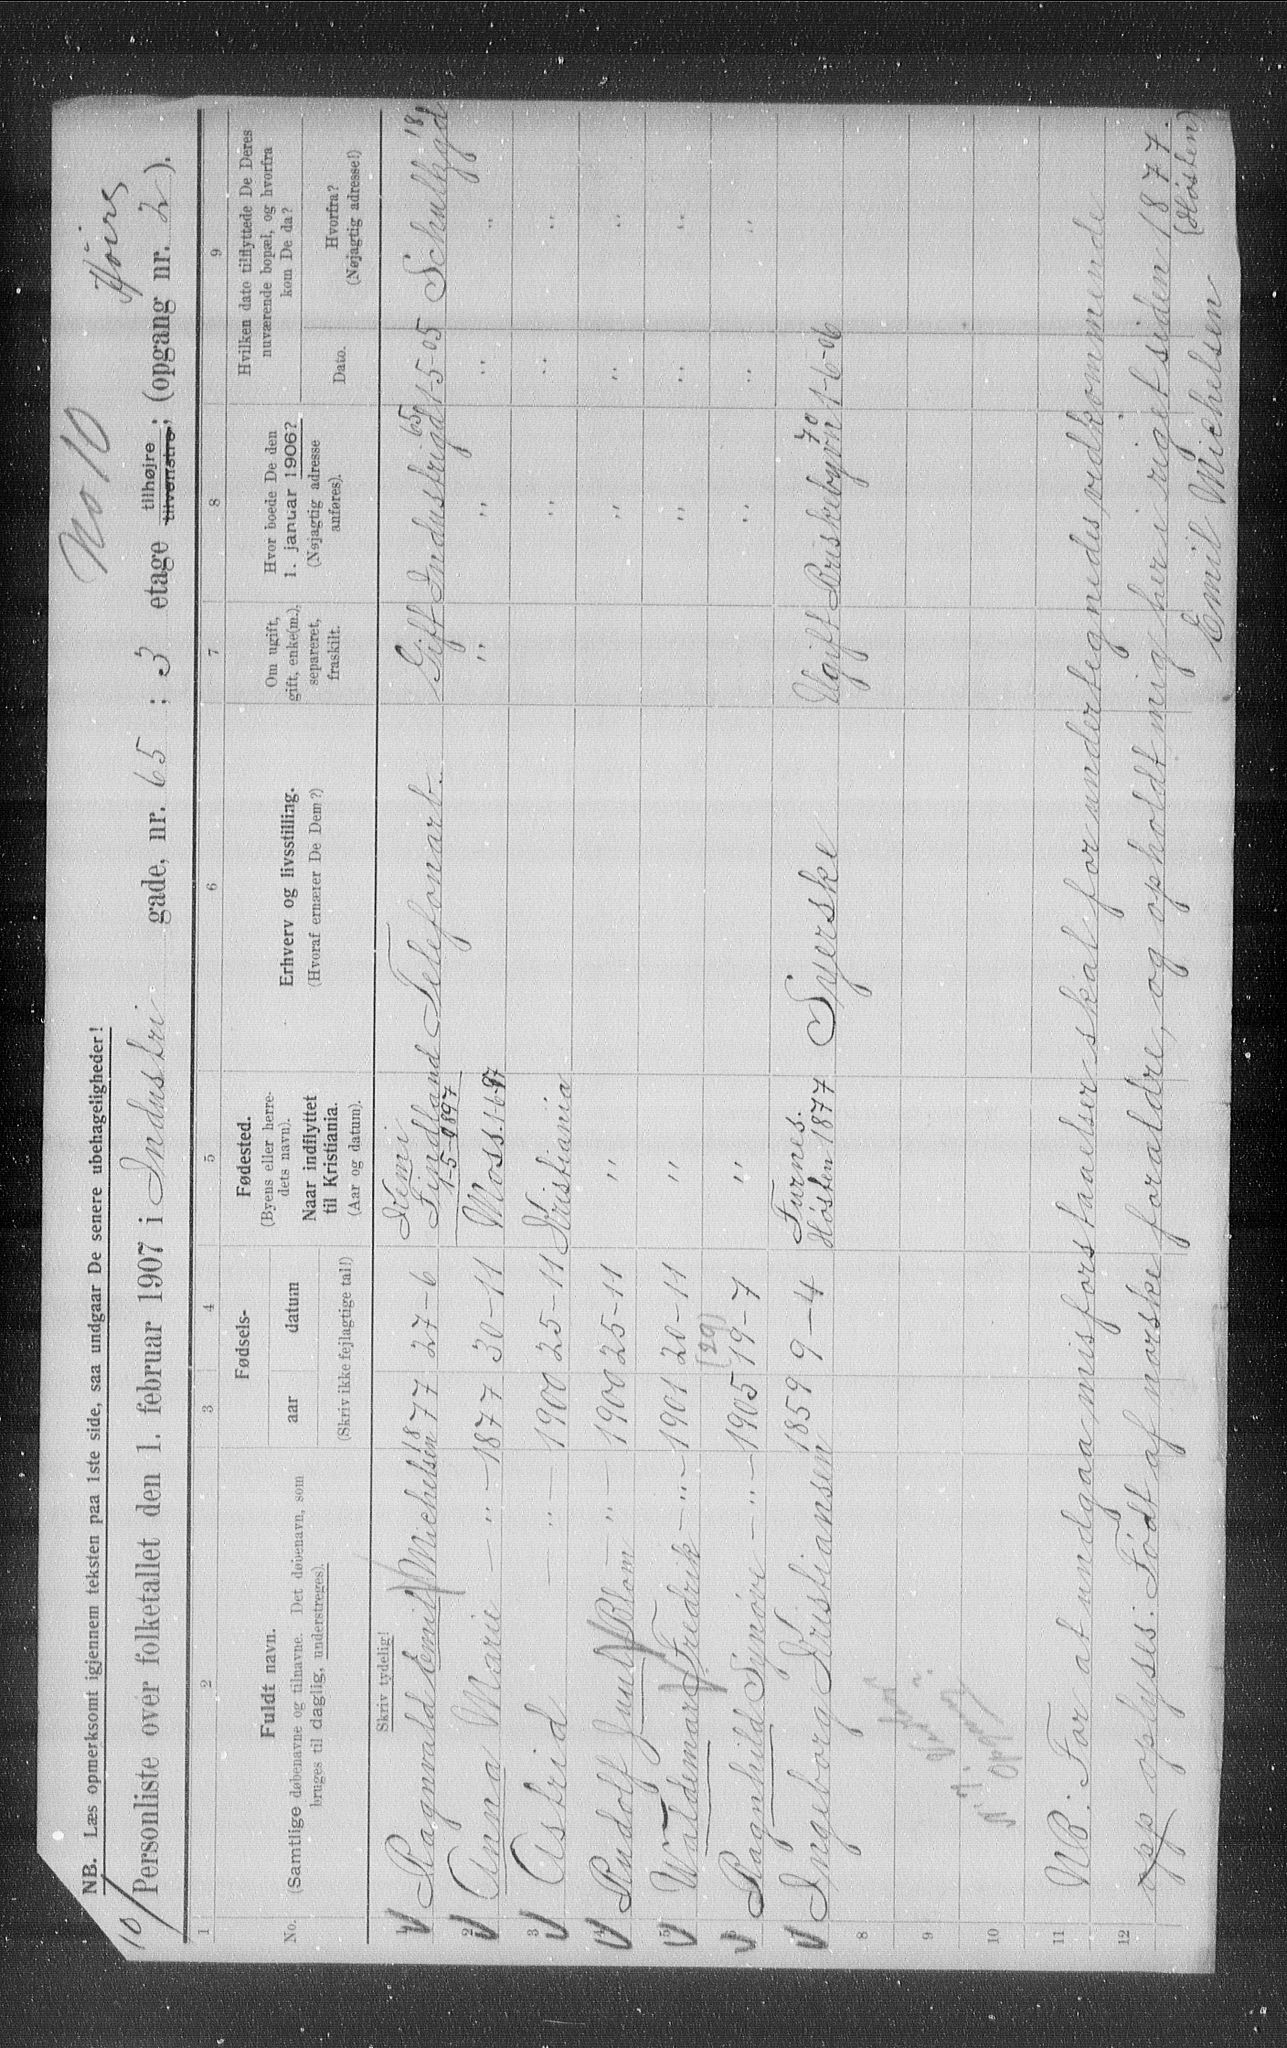 No 10
Høire
NB. Læs opmerksomt igjennem teksten paa 1ste side, saa undgaar De senere ubehageligheder!
10/
Personliste over folketallet den 1. februar 1907 i Industri gade, nr. 65; 3 etage tilhøjre tilvenstre; (opgang nr. 2).
1 2 3 4 5 6 7 8 9
No. Fuldt navn. (Samtlige døbenavne og tilnavne. Det døbenavn, som bruges til daglig, understreges).
Fødsels- aar datum (Skriv ikke fejlagtige tal!)
Fødested. (Byens eller herredets navn). Naar indflyttet til Kristiania. (Aar og datum).
Erhverv og livsstilling. (Hvoraf ernærer De Dem?)
Om ugift, gift, enke(m.), separeret, fraskilt.
Hvor boede De den 1. januar 1906? (Nøjagtig adresse anføres).
Hvilken dato tilflyttede De Deres nuværende bopæl, og hvorfra kom De da?
Dato. Hvorfra? (Nøjagtig adresse!)
Skriv tydelig!
1 Ragnvald Emil Michelsen 1877 27-6 Kemi Findland 1-5-1897 Telefonarb. Gift Industrigd 65 1-5-05 Schultzgd 18
2 Anna Marie — " — 1877 30-11 Moss. 1-6-97 " " " "
3 Astrid — " — 1900 25-11 Kristiania " " "
4 Rudolf Juul Blom — " — 1900 25-11 " " " "
5 Waldemar Fredrik — " — 1901 20-11 " " " "
6 Ragnhild Synøve — " — 1905 19-7 (29) " " " "
Ingeborg Kristiansen 1859 9-4 Furnes. Høsten 1877 Syerske Ugift Briskebyvn 70 1-6-06
8
9
10
11 NB. For at undgaa misforstaaelser skal for undertegnedes vedkommende
12 opp oplyses: Født af norske foraldre, og opholdt mig her i riget siden 1877.
(Høsten)
Emil Michelsen